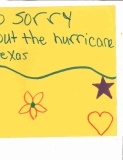 o sorry
out the hurricane
exas